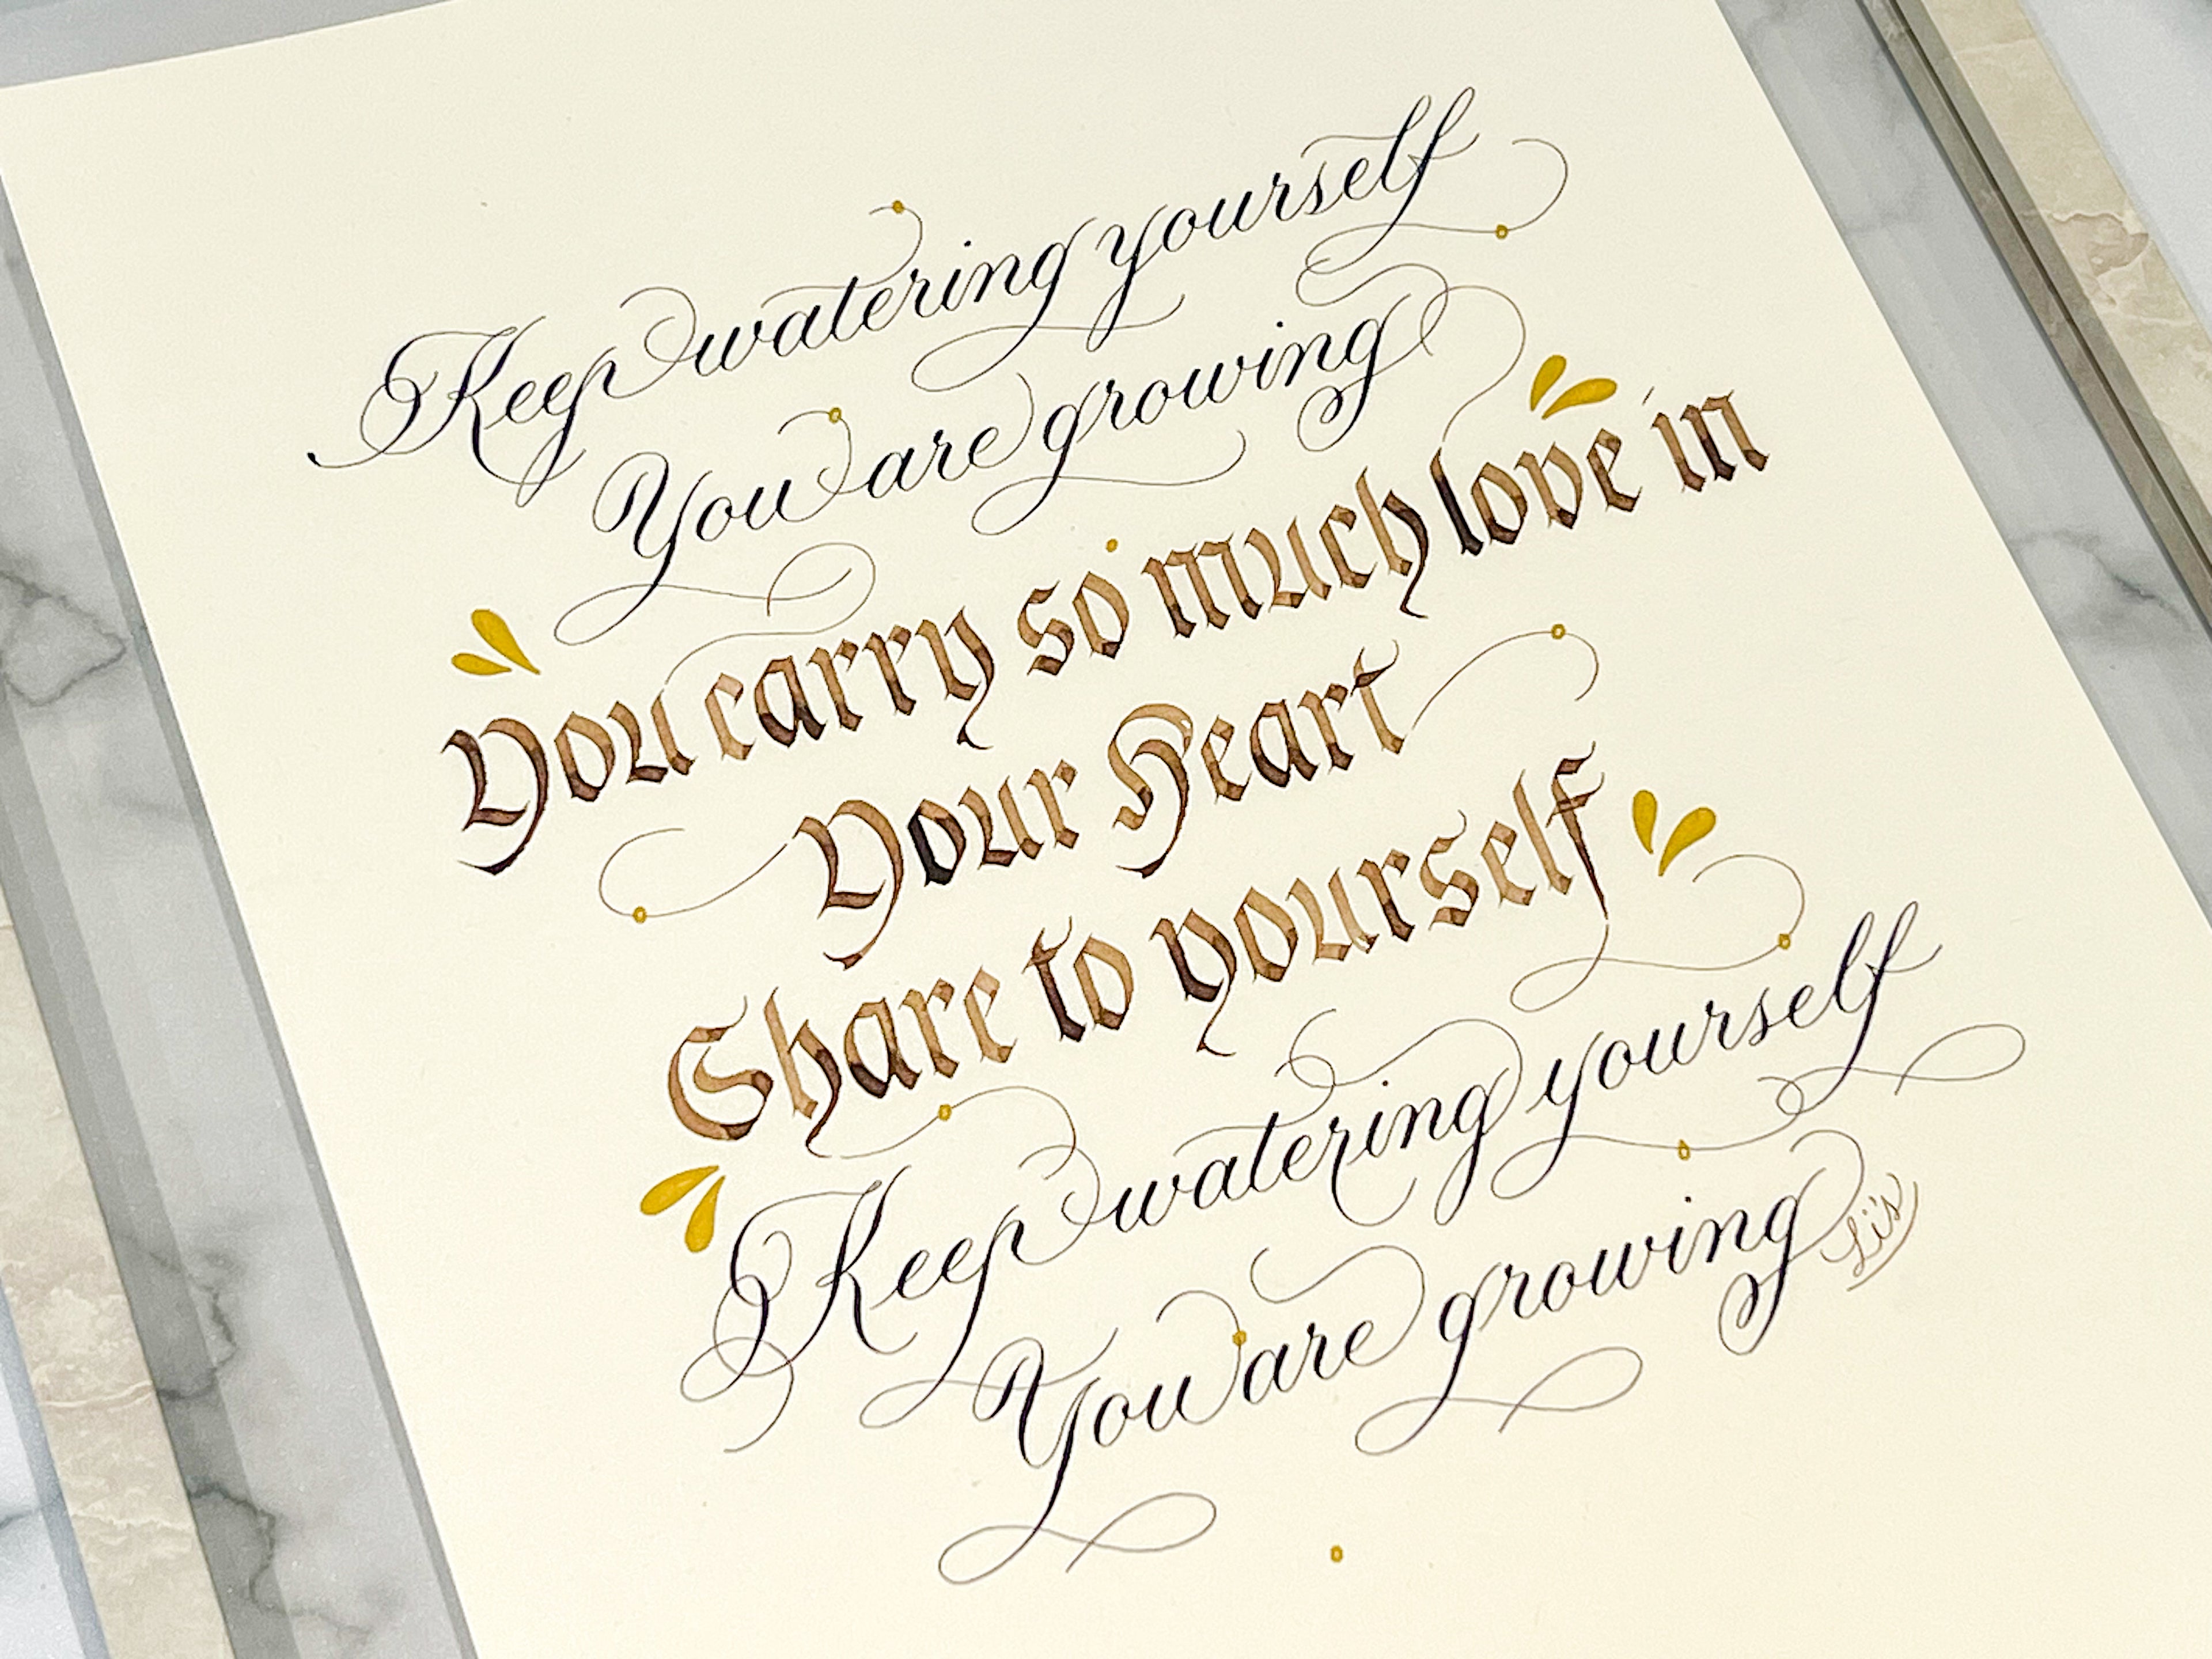 Keep watering yourself
You are growing
You carry so much love in
Your Heart
Share to yourself
Keep watering yourself
You are growing
Li's